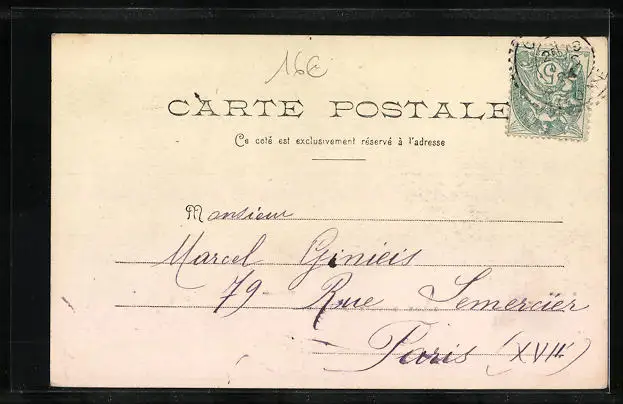 16€
CARTE POSTALE
Ce coté est exclusivement réservé à l'adresse
Monsieur
Marcel Ginieis
79 Rue Lemercier
Paris (XVII)